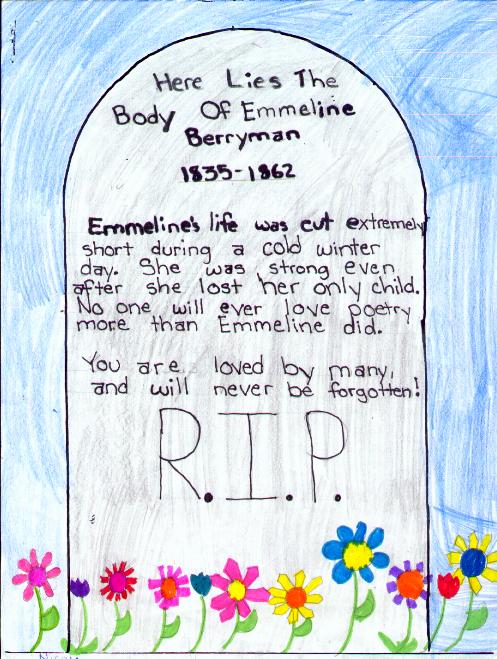 Here Lies The
Body Of Emmeline
Berryman
1835-1862
Emmeline's life was cut extremely
short during a cold winter
day. She was strong even
after she lost her only child.
No one will ever love poetry
more than Emmeline did.
You are loved by many,
and will never be forgotten!
R.I.P.